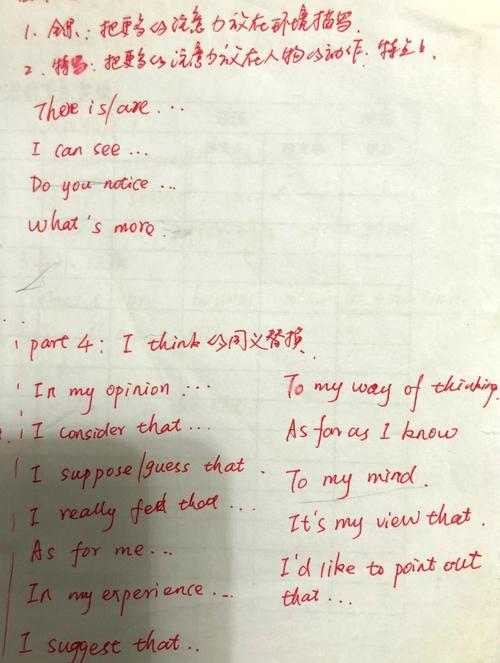 1. 全景:把更多的注意力放在环境描写.
2. 特写:把更多的注意力放在人物的动作.特点上.
There is/are...
I can see...
Do you notice...
What's more.
part 4: I think的同义替换.
In my opinion...
I consider that...
I suppose/guess that.
I really feel that...
As for me...
In my experience...
I suggest that..
To my way of thinking.
As far as I know
To my mind.
It's my view that.
I'd like to point out
that...